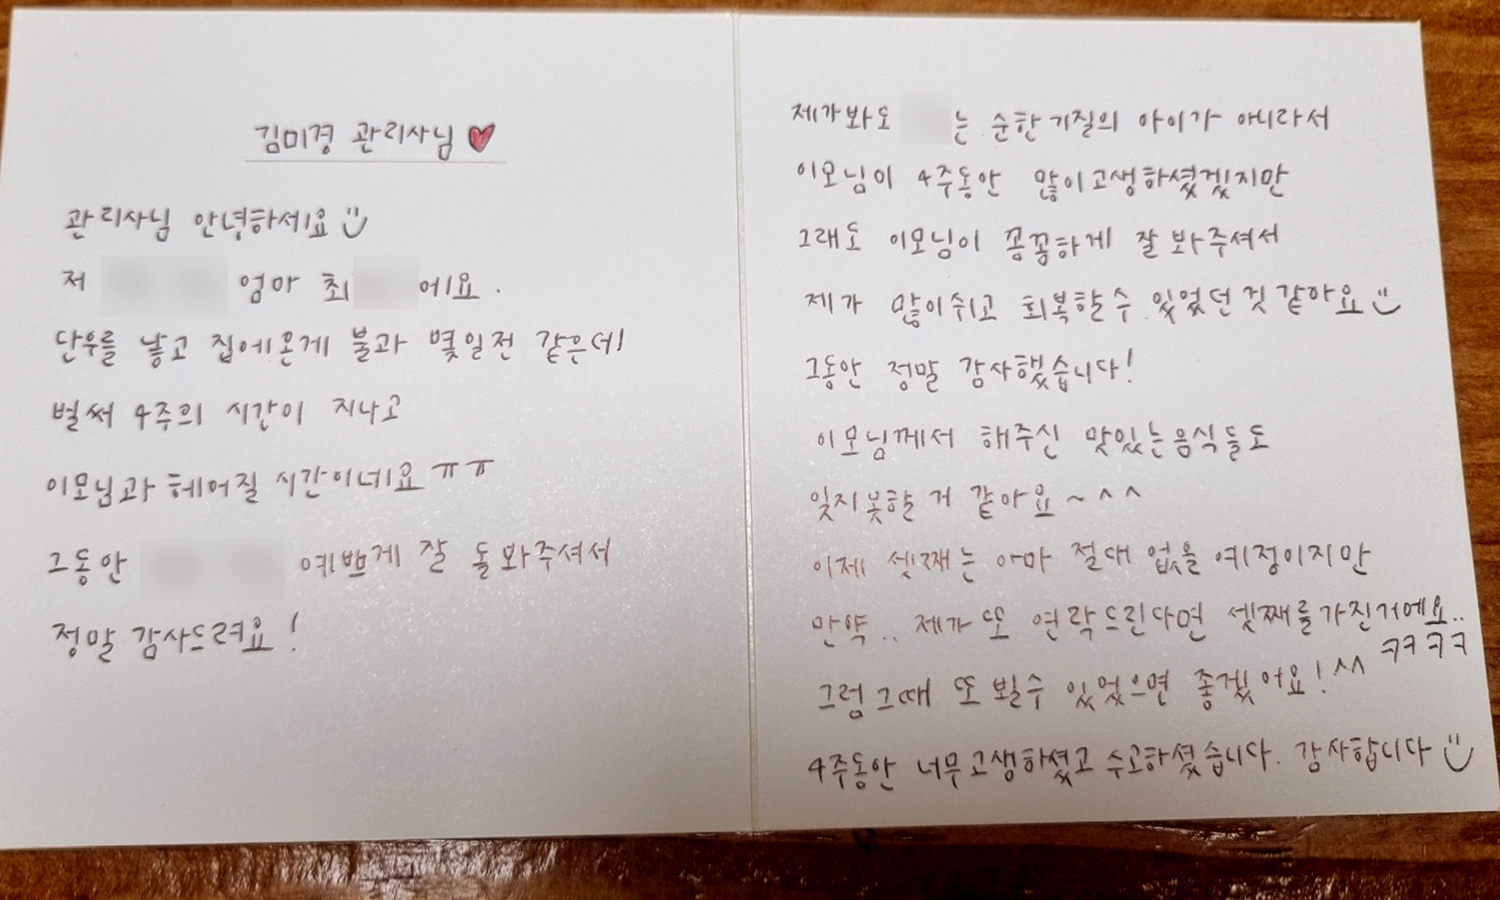 김미경 관리사님 ♥
관리사님 안녕하세요
저 엄마 최 에요.
단우를 낳고 집에온게 불과 몇일전 같은데
벌써 4주의 시간이 지나고
이모님과 헤어질 시간이네요 ㅠㅠ
그동안 예쁘게 잘 돌봐주셔서
정말 감사드려요!
제가봐도 는 순한기질의 아이가 아니라서
이모님이 4주동안 많이고생하셨겠지만
그래도 이모님이 꼼꼼하게 잘 봐주셔서
제가 많이쉬고 회복할수 있었던 것 같아요
그동안 정말 감사했습니다!
이모님께서 해주신 맛있는음식들도
잊지못할 거 같아요~^^
이제 셋째는 아마 절대 없을 예정이지만
만약.. 제가 또 연락드린다면 셋째를가진거에요..
ㅋㅋㅋㅋ
그럼그때 또 뵐수 있었으면 좋겠어요!^^
4주동안 너무고생하셨고 수고하셨습니다. 감사합니다